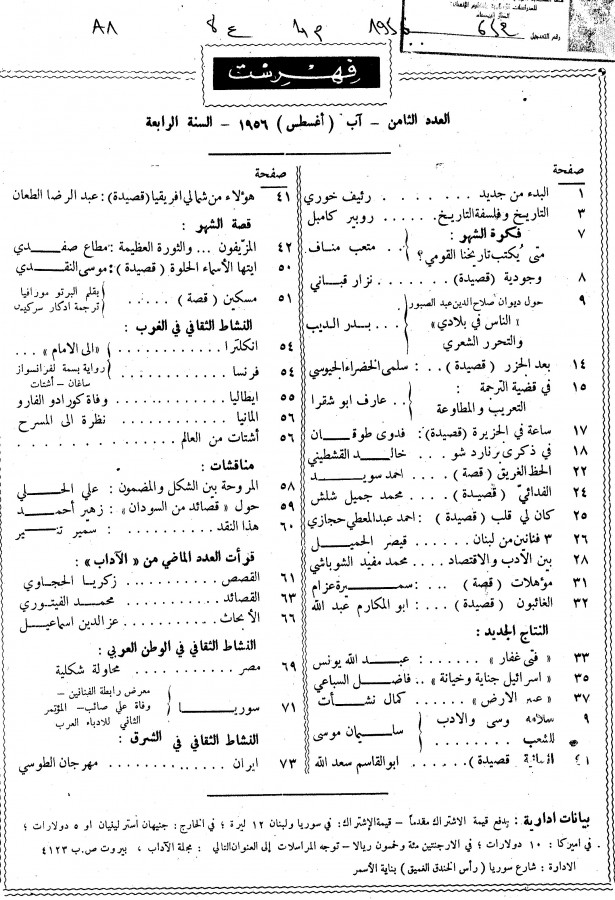 ١٩٥٦ م ٤ ع ٨ ٨٨
للدراسات
رقم التسجيل
فهرست
العدد الثامن - آب (أغسطس) ١٩٥٦ - السنة الرابعة
صفحة
١ البدء من جديد . . . . . . . رئيف خوري
٣ التاريخ وفلسفة التاريخ . . . . . روبير كامبل
٧ فكرة الشهر :
متى يُكتب تاريخنا القومي؟ . . متعب مناف
٨ وجودية (قصيدة) . . . . نزار قباني
٩ حول ديوان صلاح الدين عبد الصبور
« الناس في بلادي » . . بدر الديب
والتحرر الشعري
١٤ بعد الجزر (قصيدة) . . : سلمى الخضراء الجيوسي
١٥ في قضية الترجمة :
التعريب والمطاوعة . . عارف ابو شقرا
١٧ ساعة في الجزيرة (قصيدة): فدوى طوقان
١٨ في ذكرى برنارد شو . . . خالد القشطيني
٢٢ الحظ الغريق (قصة) . . . احمد سويد
٢٤ الفدائي (قصيدة) . . . . محمد جميل شلش
٢٥ كان لي قلب (قصيدة) : احمد عبد المعطي حجازي
٢٦ ٣ فنانين من لبنان . . . . قيصر الجميل
٢٨ بين الأدب والاقتصاد . . . محمد مفيد الشوباشي
٣١ مؤهلات (قصة) . . . : سميرة عزام
٣٢ الغائبون (قصيدة) . . : ابو المكارم عبد الله
النتاج الجديد :
٣٣ « فتى غفار » . . . . . . : عبد الله يونس
٣٥ « اسرائيل جناية وخيانة » . . فاضل السباعي
٣٧ « عبير الارض » . . . . . . كمال نشأت
٩ سلامه موسى والادب
للشعب . . . . . . . . سليمان موسى
قصيدة) . . . . . ابو القاسم سعد الله
صفحة
٤١ هؤلاء من شمالي افريقيا (قصيدة) : عبد الرضا الطعان
قصة الشهر
٤٢ المزيفون ... والثورة العظيمة : مطاع صفدي
٥٠ ايتها الأسماء الحلوة (قصيدة) : موسى النقدي
٥١ مسكين (قصة) . . . . . بقلم البرتو مورافيا
ترجمة ادكار سركيس
النشاط الثقافي في الغرب :
٥٤ انكلترا . . . . . . . . . . «الى الامام» . . .
٥٤ فرنسا . . . . . . . . . . رواية بسمة لفرانسواز
ساغان - أشتات
٥٥ ايطاليا . . . . . . . . . وفاة كورادو الفارو
٥٦ المانيا . . . . . . . . . نظرة الى المسرح
٥٦ أشتات من العالم . . . . . . . . . .
مناقشات :
٥٨ المروحة بين الشكل والمضمون : علي الحلي
٥٩ حول « قصائد من السودان » : زهير أحمد
٦٠ هذا النقد . . . . . . : سمير تنير
قرأت العدد الماضي من « الآداب » :
٦١ القصص . . . . . . . . . زكريا الحجاوي
٦٣ القصائد . . . . . . . . . محمد الفيتوري
٦٦ الأبحاث . . . . . . . . عز الدين اسماعيل
النشاط الثقافي في الوطن العربي :
٦٩ مصر . . . . . . . . . محاولة شكلية
٧١ سوريا . . . . . . معرض رابطة الفنانين -
وفاة علي صائب - المؤتمر
الثاني للادباء العرب
النشاط الثقافي في الشرق :
٧٣ ايران . . . . . . . . . . مهرجان الطوسي
بيانات ادارية : يدفع قيمة الاشتراك مقدماً - قيمة الإشتراك : في سوريا ولبنان ١٢ ليرة ؛ في الخارج : جنيهان استرلينيان او ٥ دولارات ؛
في اميركا : ١٠ دولارات ؛ في الارجنتين مئة وخمسون ريالا - توجه المراسلات إلى العنوان التالي : مجلة الآداب ، بيروت ص.ب ٤١٢٣
الادارة : شارع سوريا (رأس الخندق الغميق) بناية الأسمر